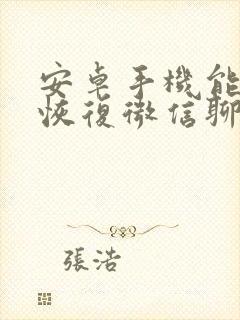 安卓手機能
恢復微信聊
張浩